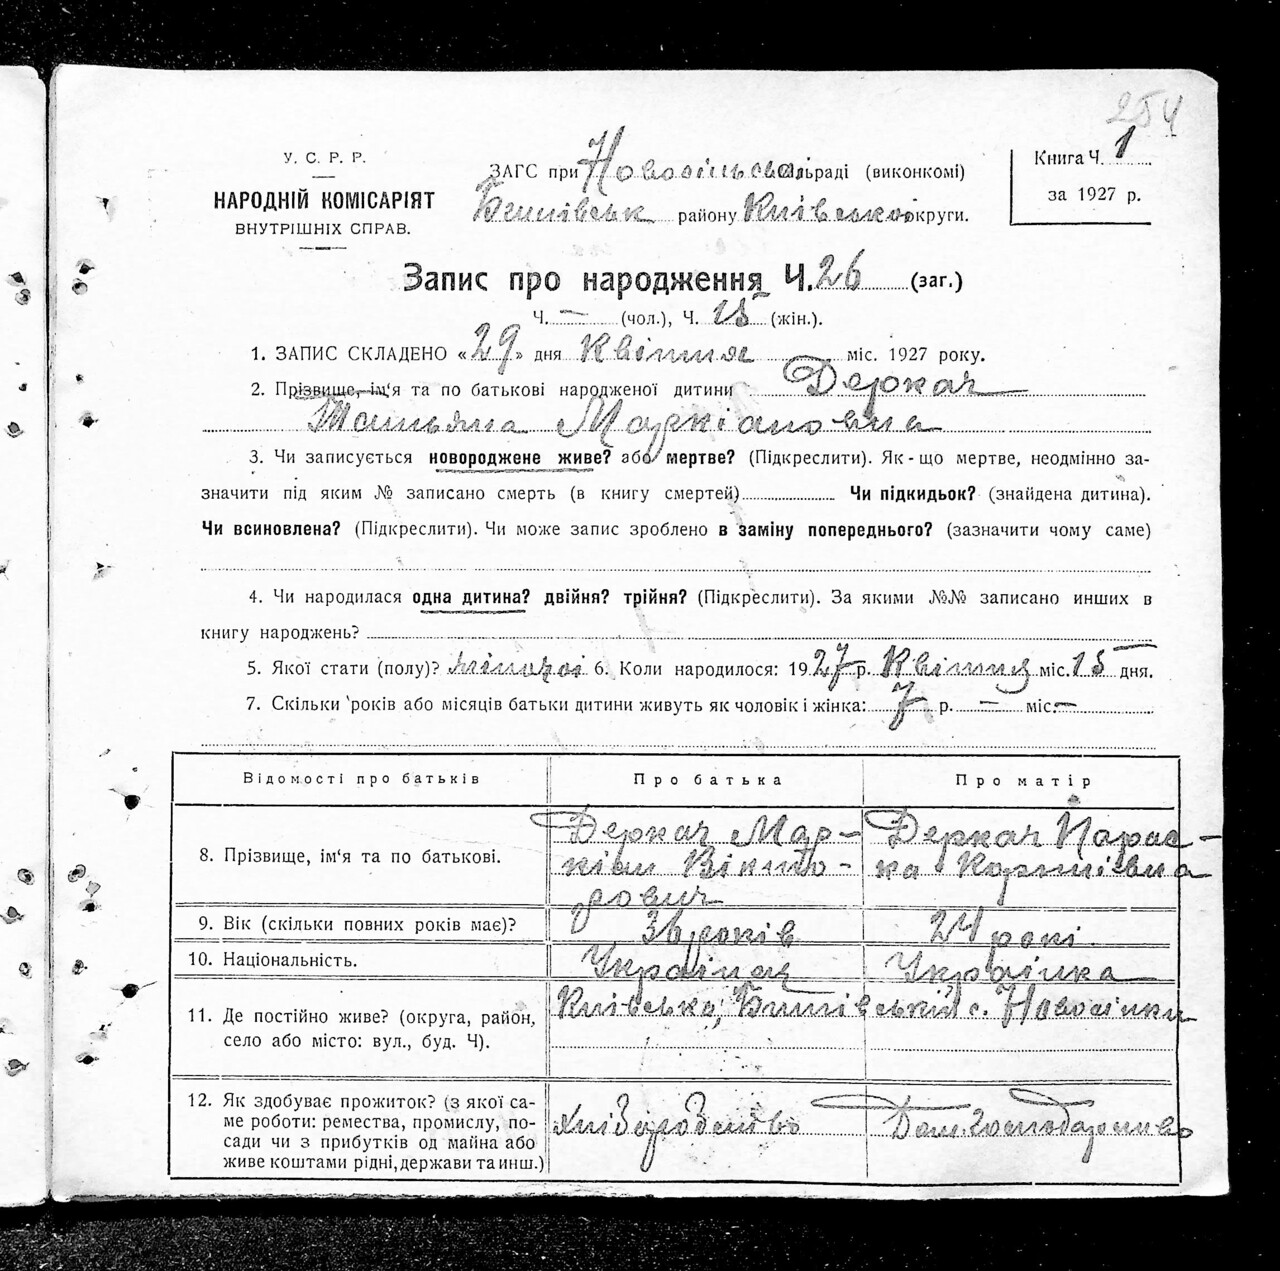 254
У. С. Р. Р.
НАРОДНІЙ КОМІСАРІЯТ
ВНУТРІШНІХ СПРАВ.
ЗАГС при Новосільськ сільраді (виконкомі)
Бишівськ району Київської округи.
Книга Ч. 1
за 1927 р.
Запис про народження Ч. 26 (заг.)
Ч. — (чол.), Ч. 15 (жін.).
1. ЗАПИС СКЛАДЕНО «29» дня Квітня міс. 1927 року.
2. Прізвище, ім'я та по батькові народженої дитини Деркач
Татьяна Маркіановна
3. Чи записується новороджене живе? або мертве? (Підкреслити). Як-що мертве, неодмінно за-
значити під яким № записано смерть (в книгу смертей) Чи підкидьок? (знайдена дитина).
Чи всиновлена? (Підкреслити). Чи може запис зроблено в заміну попереднього? (зазначити чому саме)
4. Чи народилася одна дитина? двійня? трійня? (Підкреслити). За якими №№ записано инших в
книгу народжень?
5. Якої стати (полу)? жіночої 6. Коли народилося: 1927 р. Квітня міс. 15 дня.
7. Скільки років або місяців батьки дитини живуть як чоловік і жінка: 7 р. — міс. —
Відомості про батьків Про батька Про матір
8. Прізвище, ім'я та по батькові. Деркач Мар-кіян Вікто-рович Деркач Парас-ка Карпівна
9. Вік (скільки повних років має)? 36 років 24 рокі
10. Національність. Українця Українка
11. Де постійно живе? (округа, район, село або місто: вул., буд. Ч). Київська, Бишівський с. Новосілки
12. Як здобуває прожиток? (з якої са-
ме роботи: ремества, промислу, по-
сади чи з прибутків од майна або
живе коштами рідні, держави та инш.)
хліборобство Дом. господарство